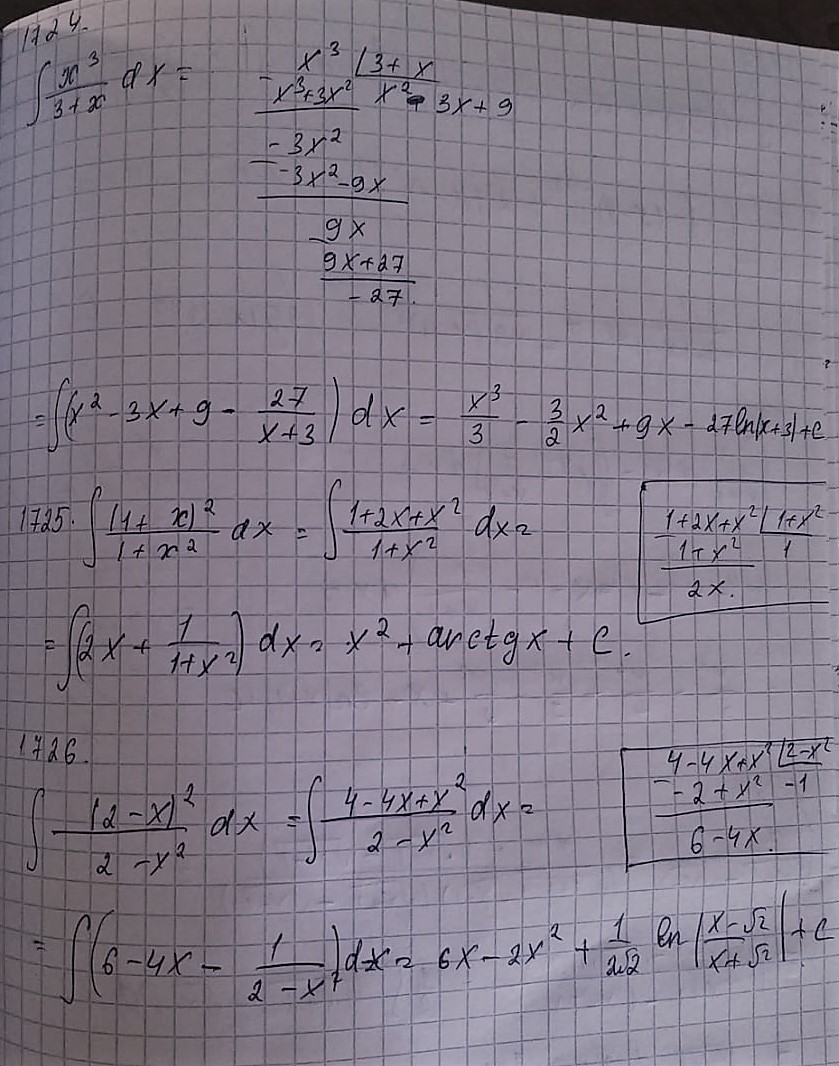 1724.
∫ x³/(3+x) dx =
x³ | 3+x
x³+3x² x²-3x+9
-3x²
-3x²-9x
9x
9x+27
-27.
= ∫(x²-3x+9- 27/(x+3)) dx = x³/3 - 3/2 x² + 9x - 27 ln|x+3| + c
1725. ∫ (1+x)²/(1+x²) dx = ∫ (1+2x+x²)/(1+x²) dx =
1+2x+x² | 1+x²
1+x² 1
2x.
= ∫(2x + 1/(1+x²)) dx = x² + arctgx + C.
1726.
∫ (2-x)²/(2-x²) dx = ∫ (4-4x+x²)/(2-x²) dx =
4-4x+x² | 2-x²
-2+x² -1
6-4x.
= ∫(6-4x- 1/(2-x²)) dx = 6x-2x² + 1/(2√2) ln |(x-√2)/(x+√2)| + c